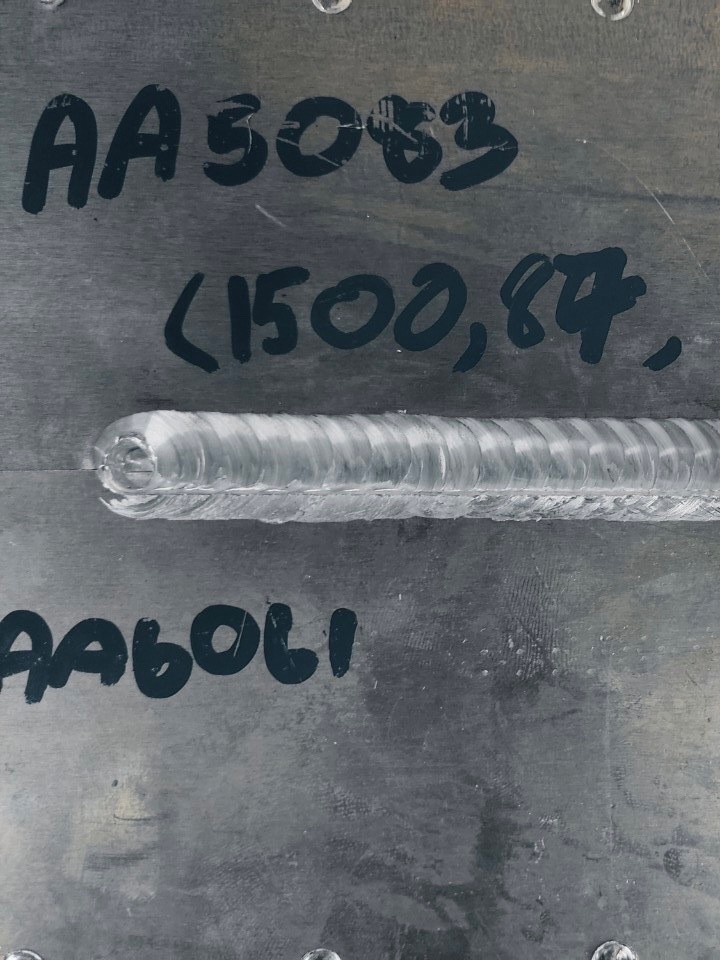 AA5083
(1500,87,
AA6061